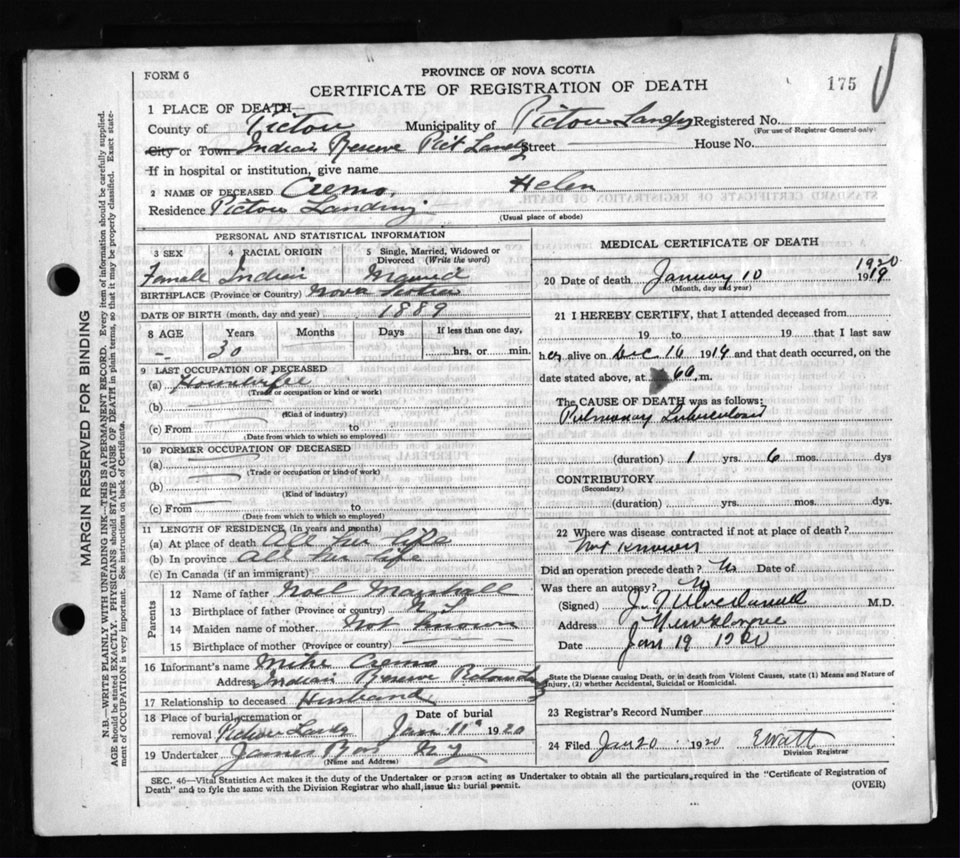 FORM 6
PROVINCE OF NOVA SCOTIA
CERTIFICATE OF REGISTRATION OF DEATH
175
1 PLACE OF DEATH—
County of Pictou Municipality of Pictou Landg Registered No.
(For use of Registrar General only)
City or Town Indian Reserve Pict Landg Street House No.
If in hospital or institution, give name
2 NAME OF DECEASED Cremo, Helen
Residence Pictou Landing
(Usual place of abode)
PERSONAL AND STATISTICAL INFORMATION
3 SEX 4 RACIAL ORIGIN 5 Single, Married, Widowed or Divorced (Write the word)
Female Indian Married
BIRTHPLACE (Province or Country) Nova Scotia
DATE OF BIRTH (month, day and year) 1889
8 AGE Years Months Days If less than one day,
30 hrs. or min.
9 LAST OCCUPATION OF DECEASED
(a) Housewife
(Trade or occupation or kind or work)
(b)
(Kind of industry)
(c) From to
(Date from which to which so employed)
10 FORMER OCCUPATION OF DECEASED
(a)
(Trade or occupation or kind of work)
(b)
(Kind of industry)
(c) From to
(Date from which to which so employed)
11 LENGTH OF RESIDENCE (In years and months)
(a) At place of death All her life
(b) In province All her life
(c) In Canada (if an immigrant)
Parents
12 Name of father Noel Marshall
13 Birthplace of father (Province or country) N S
14 Maiden name of mother Not Known
15 Birthplace of mother (Province or country)
16 Informant's name Mike Cremo
Address Indian Reserve Pictou Landg
17 Relationship to deceased Husband
18 Place of burial, cremation or removal Pictou Landg Date of burial Jan 11th 1920
19 Undertaker James
(Name and Address)
MEDICAL CERTIFICATE OF DEATH
20 Date of death January 10 1920 1919
(Month, day and year)
21 I HEREBY CERTIFY, that I attended deceased from
19 to 19 that I last saw
her alive on Dec 16 1919 and that death occurred, on the
date stated above, at 6 a. m.
The CAUSE OF DEATH was as follows:
Pulmonary Tuberculosis
(duration) 1 yrs. 6 mos. dys
CONTRIBUTORY
(Secondary)
(duration) yrs. mos. dys
22 Where was disease contracted if not at place of death?
Not Known
Did an operation precede death? No Date of
Was there an autopsy? No
(Signed) J. M.D.
Address New Glasgow
Date Jan 19 1920
State the Disease causing Death, or in death from Violent Causes, state (1) Means and Nature of
Injury, (2) whether Accidental, Suicidal or Homicidal.
23 Registrar's Record Number
24 Filed Jan 20 1920 E Watt
Division Registrar
SEC. 46—Vital Statistics Act makes it the duty of the Undertaker or person acting as Undertaker to obtain all the particulars, required in the "Certificate of Registration of
Death" and to fyle the same with the Division Registrar who shall, issue the burial permit.
(OVER)
MARGIN RESERVED FOR BINDING
N.B.—WRITE PLAINLY WITH UNFADING INK—THIS IS A PERMANENT RECORD. Every item of information should be carefully supplied.
AGE should be stated EXACTLY. PHYSICIANS should STATE CAUSE OF DEATH in plain terms, so that it may be properly classified. Exact state-
ment of OCCUPATION is very important. See instructions on back of Certificate.